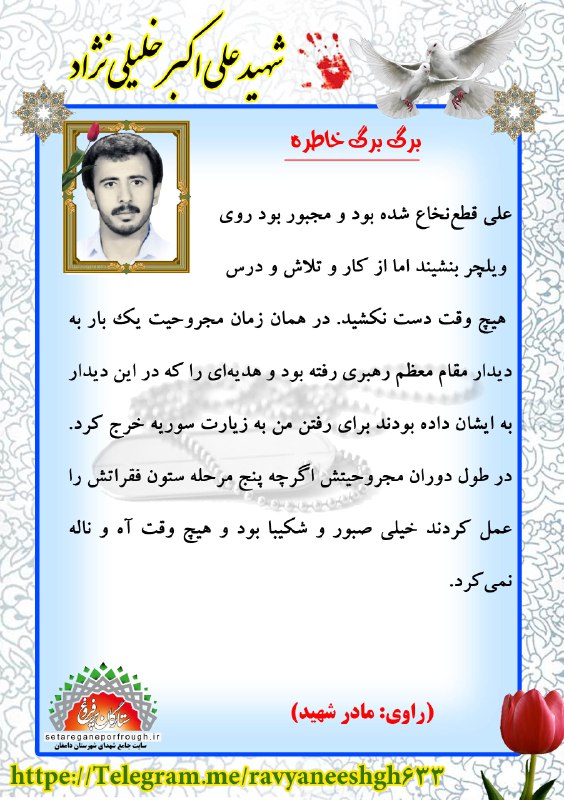 شهید علی اکبر خلیلی نژاد
برگ برگ خاطره
علی قطع‌نخاع شده بود و مجبور بود روی
ویلچر بنشیند اما از کار و تلاش و درس
هیچ وقت دست نکشید. در همان زمان مجروحیت یک بار به
دیدار مقام معظم رهبری رفته بود و هدیه‌ای را که در این دیدار
به ایشان داده بودند برای رفتن من به زیارت سوریه خرج کرد.
در طول دوران مجروحیتش اگرچه پنج مرحله ستون فقراتش را
عمل کردند خیلی صبور و شکیبا بود و هیچ وقت آه و ناله
نمی‌کرد.
(راوی: مادر شهید)
ستارگان پرفروغ
setareganeporfrough.ir
سایت جامع شهدای شهرستان دامغان
https://Telegram.me/ravyaneeshgh۶۳۳